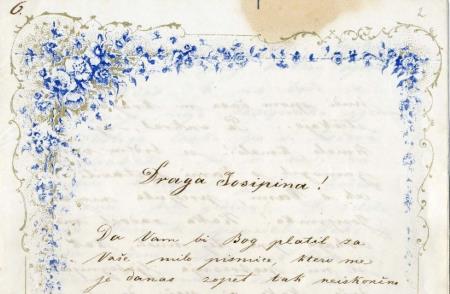 6.
2
Draga Josipina!
Da Vam bi Bog platil za
Vaše milo pismice, ktero me
je danas zopet tak neiskončno